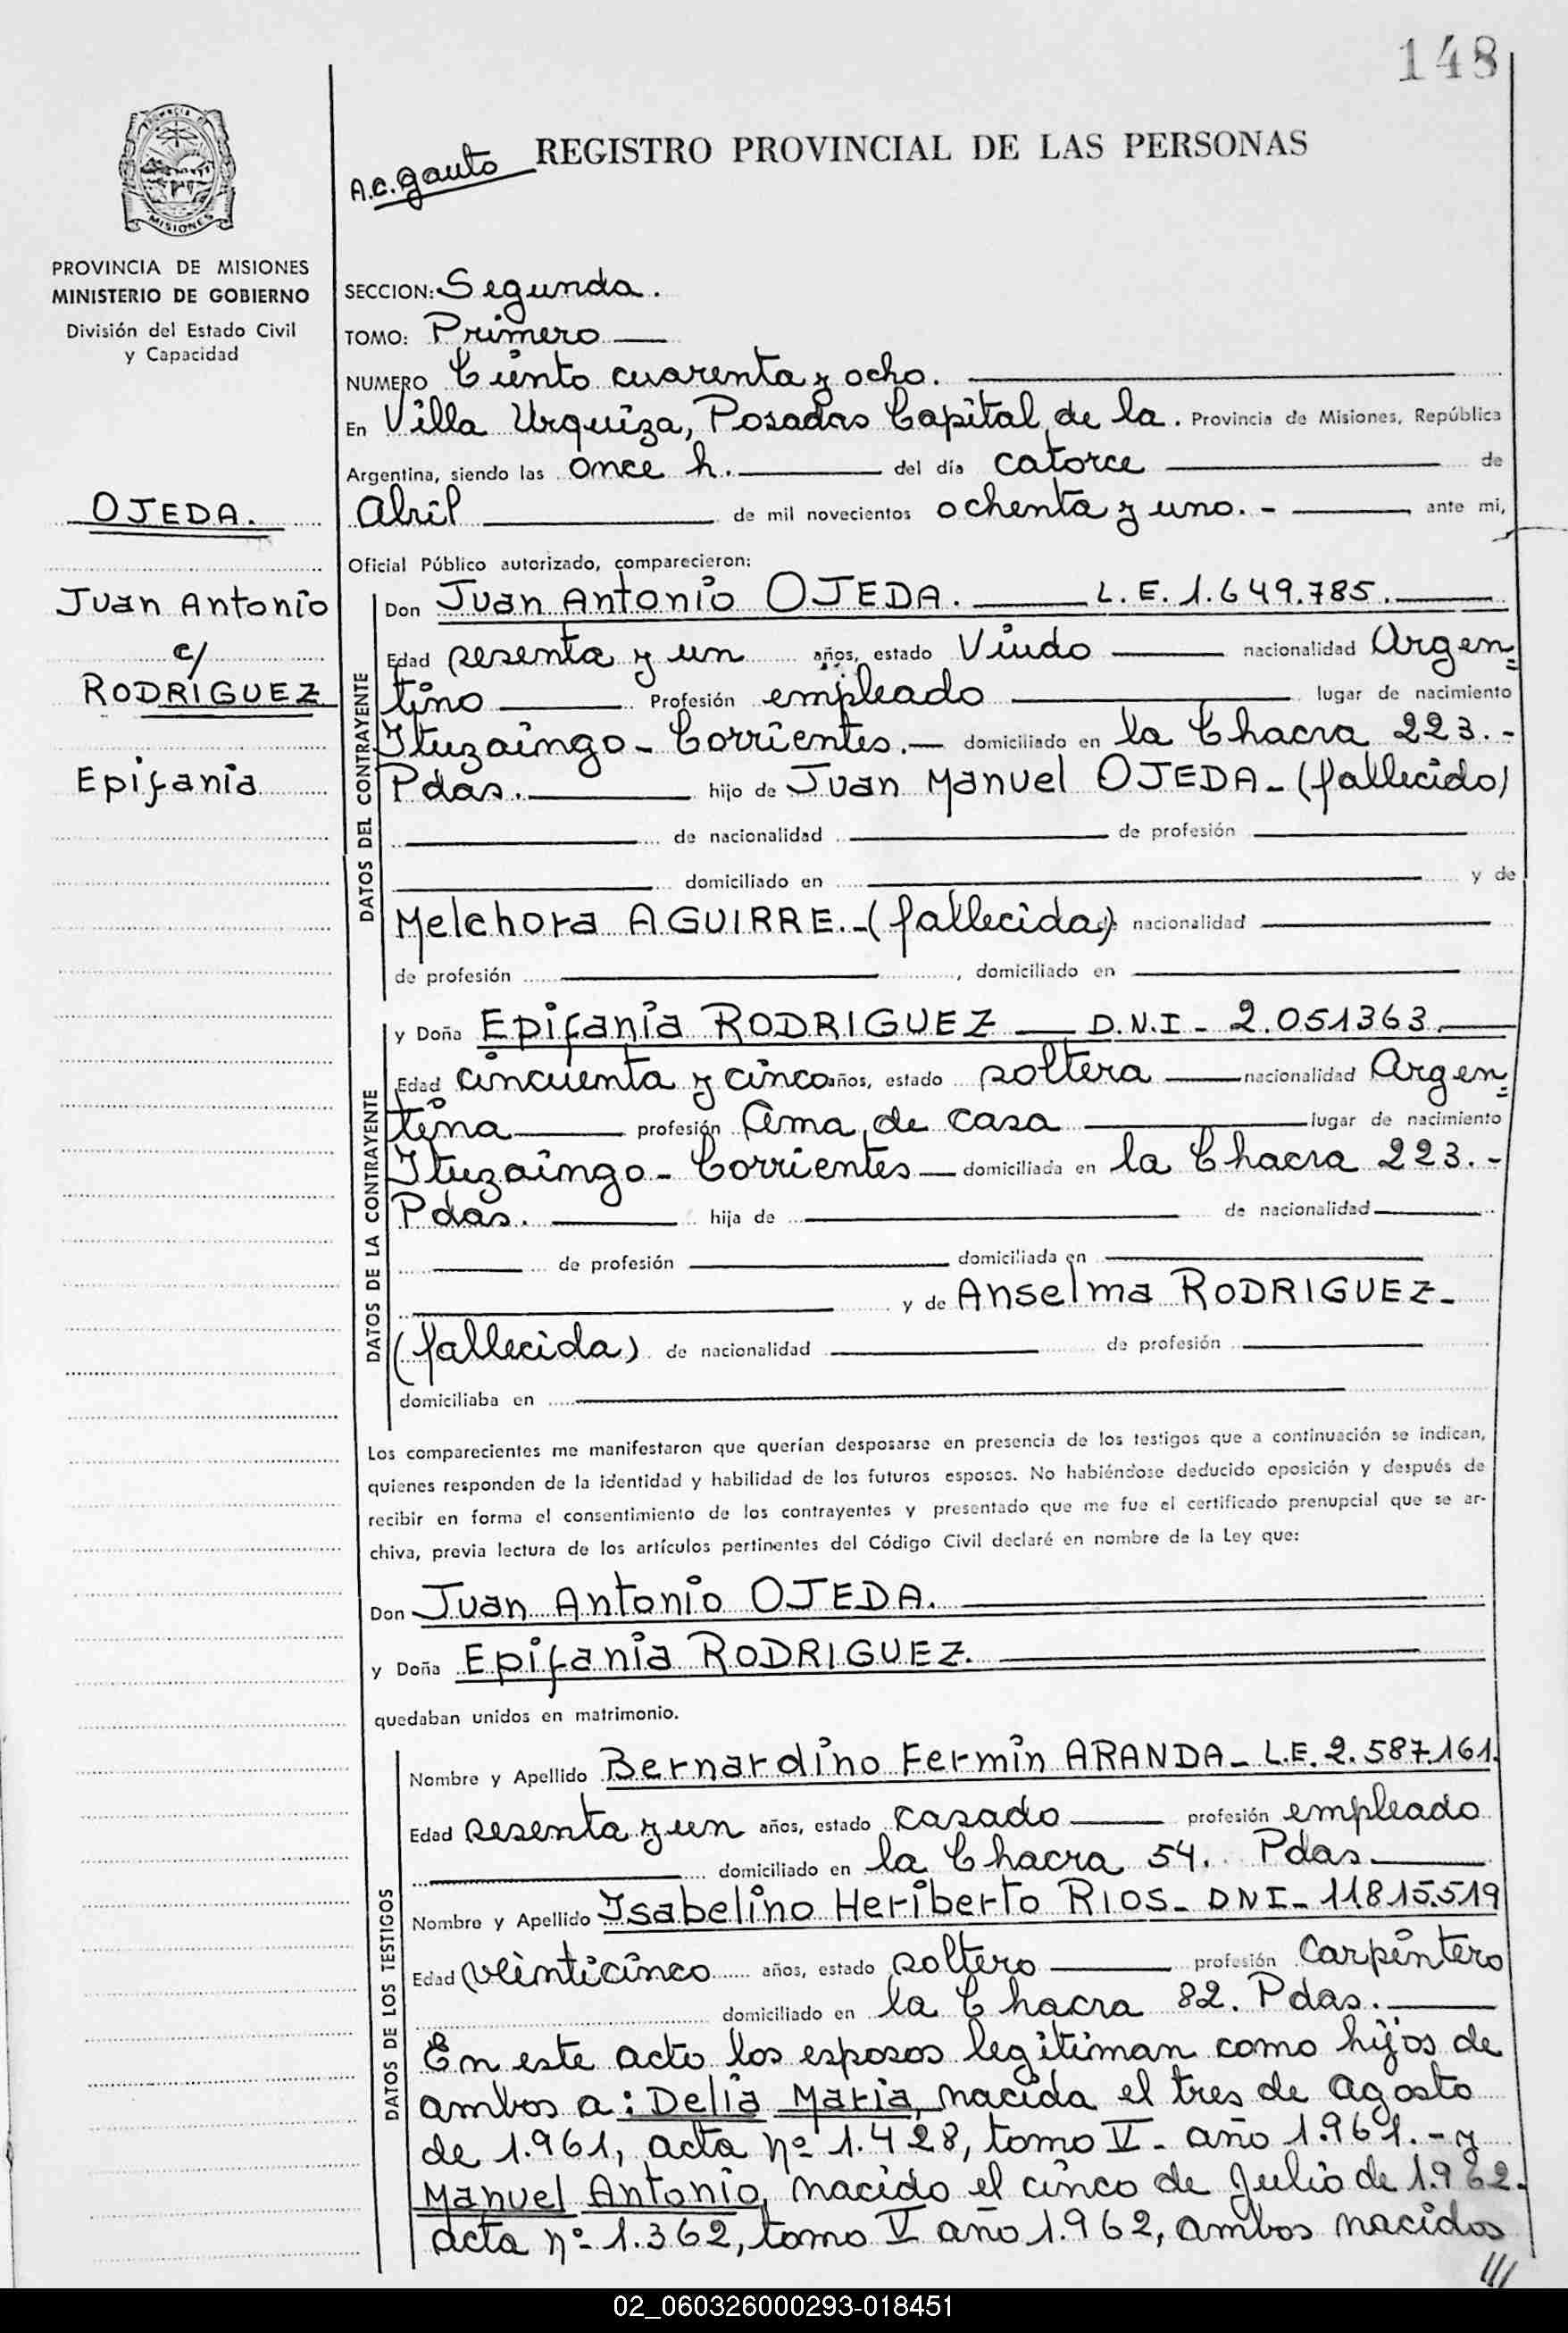 148
REGISTRO PROVINCIAL DE LAS PERSONAS
A.C. Gauto
MISIONES
PROVINCIA DE MISIONES
MINISTERIO DE GOBIERNO
División del Estado Civil
y Capacidad
OJEDA.
Juan Antonio
c/
RODRÍGUEZ
Epifania
SECCION: Segunda.
TOMO: Primero
NUMERO Ciento cuarenta y ocho.
En Villa Urquiza, Posadas Capital de la. Provincia de Misiones, República
Argentina, siendo las once h. del día catorce de
Abril de mil novecientos ochenta y uno. - ante mi,
Oficial Público autorizado, comparecieron:
DATOS DEL CONTRAYENTE
Don Juan Antonio OJEDA. L.E. 1.649.785.
Edad sesenta y un años, estado Viudo nacionalidad Argen=
tino Profesión empleado lugar de nacimiento
Ituzaingo - Corrientes. - domiciliado en la Chacra 223. -
Pdas. hijo de Juan Manuel OJEDA - (fallecido)
de nacionalidad de profesión
domiciliado en y de
Melchora AGUIRRE. - (fallecida) nacionalidad
de profesión , domiciliado en
DATOS DE LA CONTRAYENTE
y Doña Epifania RODRIGUEZ D.N.I - 2.051363.
Edad cincuenta y cinco años, estado soltera nacionalidad Argen=
tina profesión Ama de casa lugar de nacimiento
Ituzaingo - Corrientes domiciliada en la Chacra 223. -
Pdas. hija de de nacionalidad
de profesión domiciliada en
y de Anselma RODRIGUEZ -
(fallecida) de nacionalidad de profesión
domiciliaba en
Los comparecientes me manifestaron que querían desposarse en presencia de los testigos que a continuación se indican,
quienes responden de la identidad y habilidad de los futuros esposos. No habiéndose deducido oposición y después de
recibir en forma el consentimiento de los contrayentes y presentado que me fue el certificado prenupcial que se ar-
chiva, previa lectura de los artículos pertinentes del Código Civil declaré en nombre de la Ley que:
Don Juan Antonio OJEDA.
y Doña Epifania RODRIGUEZ.
quedaban unidos en matrimonio.
DATOS DE LOS TESTIGOS
Nombre y Apellido Bernardino Fermin ARANDA - L.E. 2.587.161.
Edad sesenta y un años, estado casado profesión empleado
domiciliado en la Chacra 54. Pdas.
Nombre y Apellido Isabelino Heriberto RIOS - DNI - 11.815.519
Edad veinticinco años, estado soltero profesión Carpintero
domiciliado en la Chacra 82. Pdas.
En este acto los esposos legitiman como hijos de
ambos a: Delia Maria, nacida el tres de agosto
de 1.961, acta nº 1.428, tomo V - año 1.961. - y
Manuel Antonio, nacido el cinco de Julio de 1.962.
acta nº 1.362, tomo V año 1.962, ambos nacidos
///
02_060326000293-018451